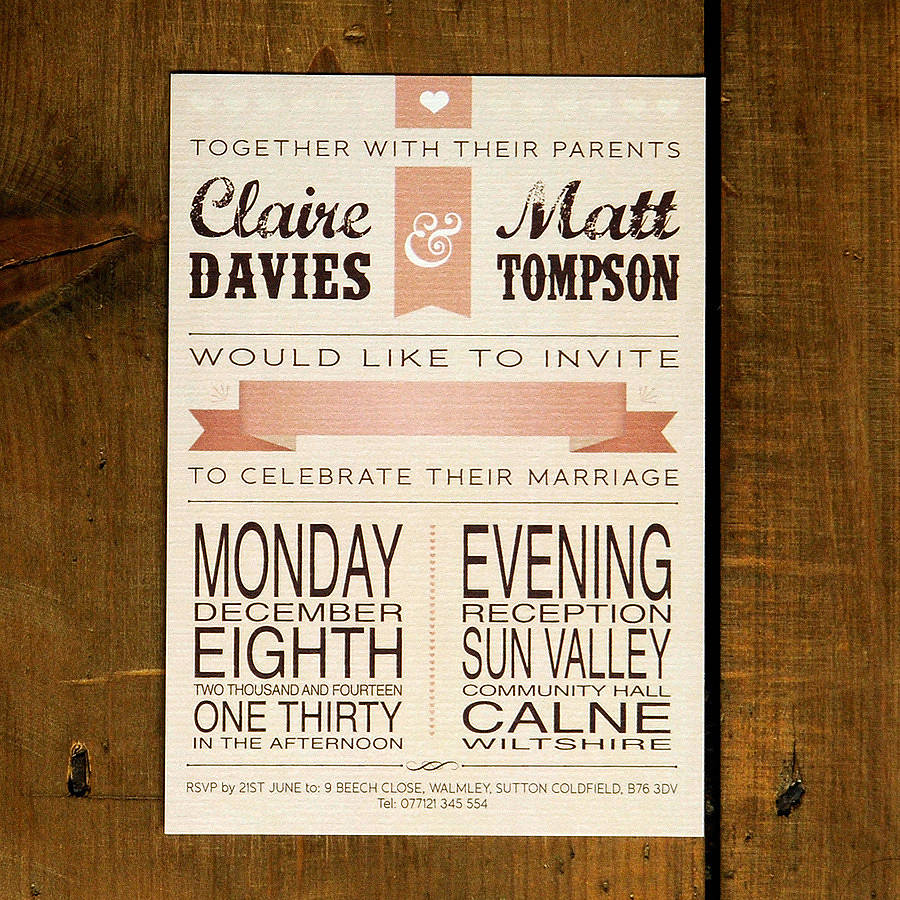 TOGETHER WITH THEIR PARENTS
Claire & Matt
DAVIES TOMPSON
WOULD LIKE TO INVITE
TO CELEBRATE THEIR MARRIAGE
MONDAY
DECEMBER
EIGHTH
TWO THOUSAND AND FOURTEEN
ONE THIRTY
IN THE AFTERNOON
EVENING
RECEPTION
SUN VALLEY
COMMUNITY HALL
CALNE
WILTSHIRE
RSVP by 21ST JUNE to: 9 BEECH CLOSE, WALMLEY, SUTTON COLDFIELD, B76 3DV
Tel: 077121 345 554